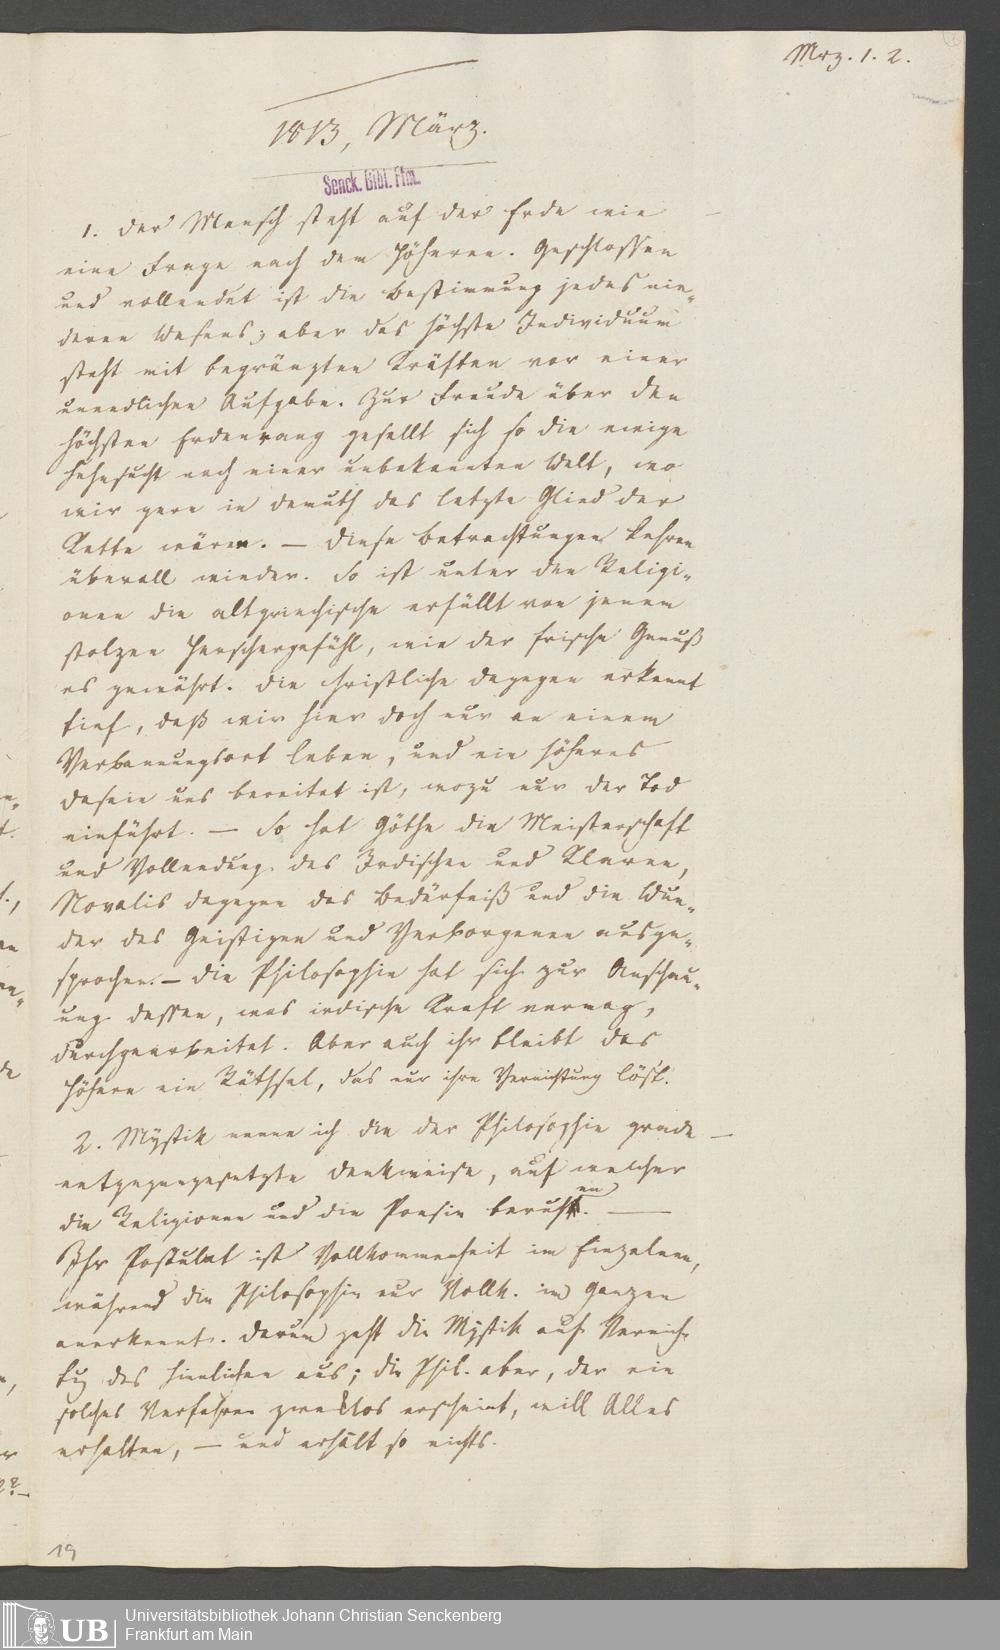 Mrz. 1. 2.
1813, März.
Senck. Bibl. Ffm.
1. Der Mensch steht auf der Erde wie
eine Frage nach dem Höheren. Geschlossen
und vollendet ist die Bestimmung jedes nie-
deren Wesens; aber das höchste Individuum
steht mit begränzten Kräften vor einer
unendlichen Aufgabe. Zur Freude über den
höchsten Erdenrang gesellt sich so die ewige
Sehnsucht nach einer unbekannten Welt, wo
wir gern in Demuth das letzte Glied der
Kette wären. — Diese Betrachtungen kehren
überall wieder. So ist unter den Religi-
onen die altgriechische erfüllt von jenem
stolzen Herschergefühl, wie der frische Genuß
es gewährt. Die christliche dagegen erkennt
tief, daß wir hier doch nur an einem
Verbannungsort leben, und ein höheres
Dasein uns bereitet ist, wozu nur der Tod
einführt. — So hat Göthe die Meisterschaft
und Vollendung des Irdischen und Klaren,
Novalis dagegen das Bedürfniß und die Wun-
der des Geistigen und Verborgenen ausge-
sprochen. — Die Philosophie hat sich zur Anschau-
ung dessen, was irdische Kraft vermag,
durchgearbeitet. Aber auch ihr bleibt das
Höhere ein Räthsel, das nur ihre Vernichtung löst.
2. Mystik nenne ich die der Philosophie grade —
entgegengesetzte Denkweise, auf welcher
die Religionen und die Poesie beruhen. —
Ihr Postulat ist Vollkommenheit im Einzelnen,
während die Philosophie nur Vollk. im Ganzen
anerkennt. Darum geht die Mystik auf Vernich-
tg des Sinnlichen aus; die Phil. aber, der ein
solches Verfahren zwecklos erscheint, will Alles
erhalten, — und erhält so nichts.
19
UB
Universitätsbibliothek Johann Christian Senckenberg
Frankfurt am Main